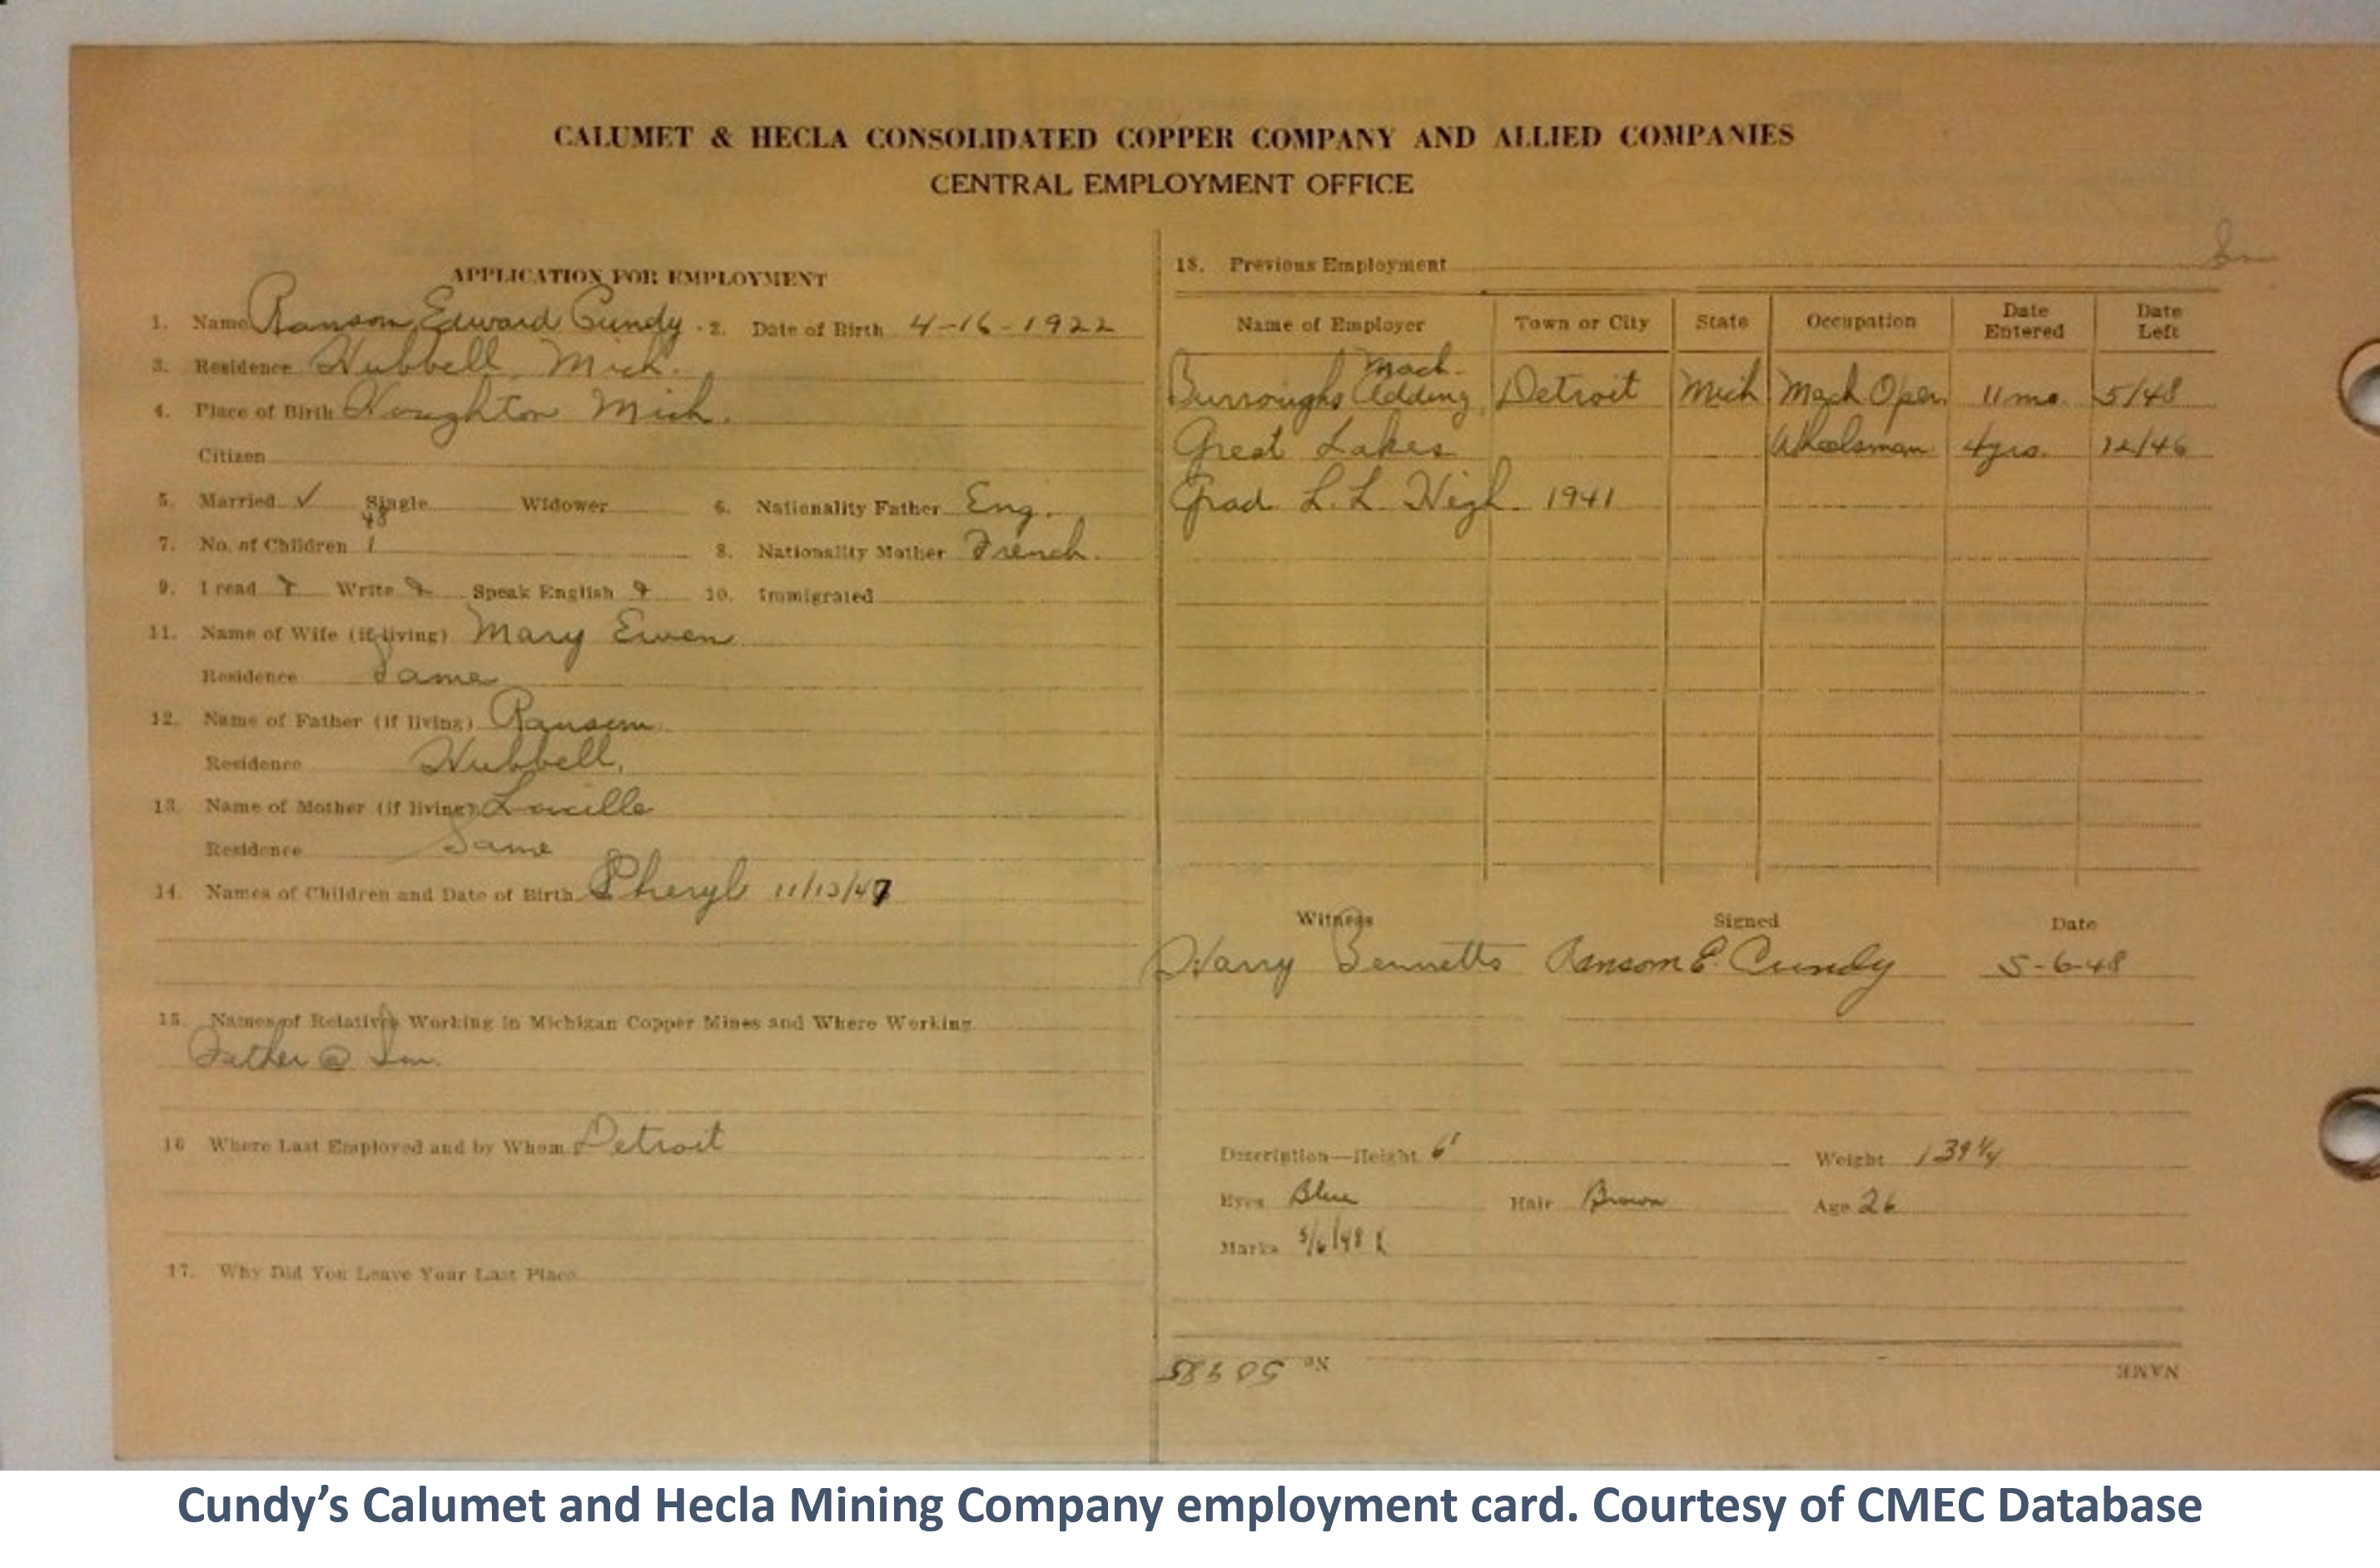 CALUMET & HECLA CONSOLIDATED COPPER COMPANY AND ALLIED COMPANIES
CENTRAL EMPLOYMENT OFFICE
APPLICATION FOR EMPLOYMENT
1. Name Ransom Edward Cundy 2. Date of Birth 4-16-1922
3. Residence Hubbell, Mich.
4. Place of Birth Houghton Mich.
Citizen
5. Married ✓ Single Widower 6. Nationality Father Eng.
48
7. No. of Children 1 8. Nationality Mother French.
9. I read Write Speak English 10. Immigrated
11. Name of Wife (if living) Mary Ewen
Residence Same
12. Name of Father (if living) Ransom
Residence Hubbell,
13. Name of Mother (if living) Lucille
Residence Same
14. Names of Children and Date of Birth Cheryl 11/13/47
15. Names of Relatives Working in Michigan Copper Mines and Where Working
Father @ Sm.
16 Where Last Employed and by Whom Detroit
17. Why Did You Leave Your Last Place
Sm
18. Previous Employment
Name of Employer Town or City State Occupation Date Entered Date Left
Mach.
Burroughs Adding Detroit Mich Mach Oper. 11 mo. 5/48
Great Lakes Wheelsman 4 yrs. 12/46
Grad L.L. High 1941
Witness Signed Date
Harry Bennetts Ransom E. Cundy 5-6-48
Description—Height 6' Weight 139 1/4
Eyes Blue Hair Brown Age 26
Marks 5/6/48
NAME No.
Cundy's Calumet and Hecla Mining Company employment card. Courtesy of CMEC Database